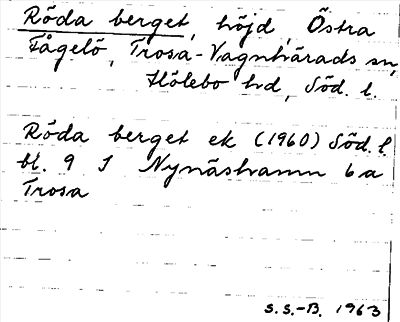 Röda berget, höjd, Östra
Fågelö, Trosa-Vagnhärads sn,
Hölebo hd, Söd. l.
Röda berget ek (1960) Söd. l.
bl. 9 I Nynäshamn 6a
Trosa
S.S.-B. 1963